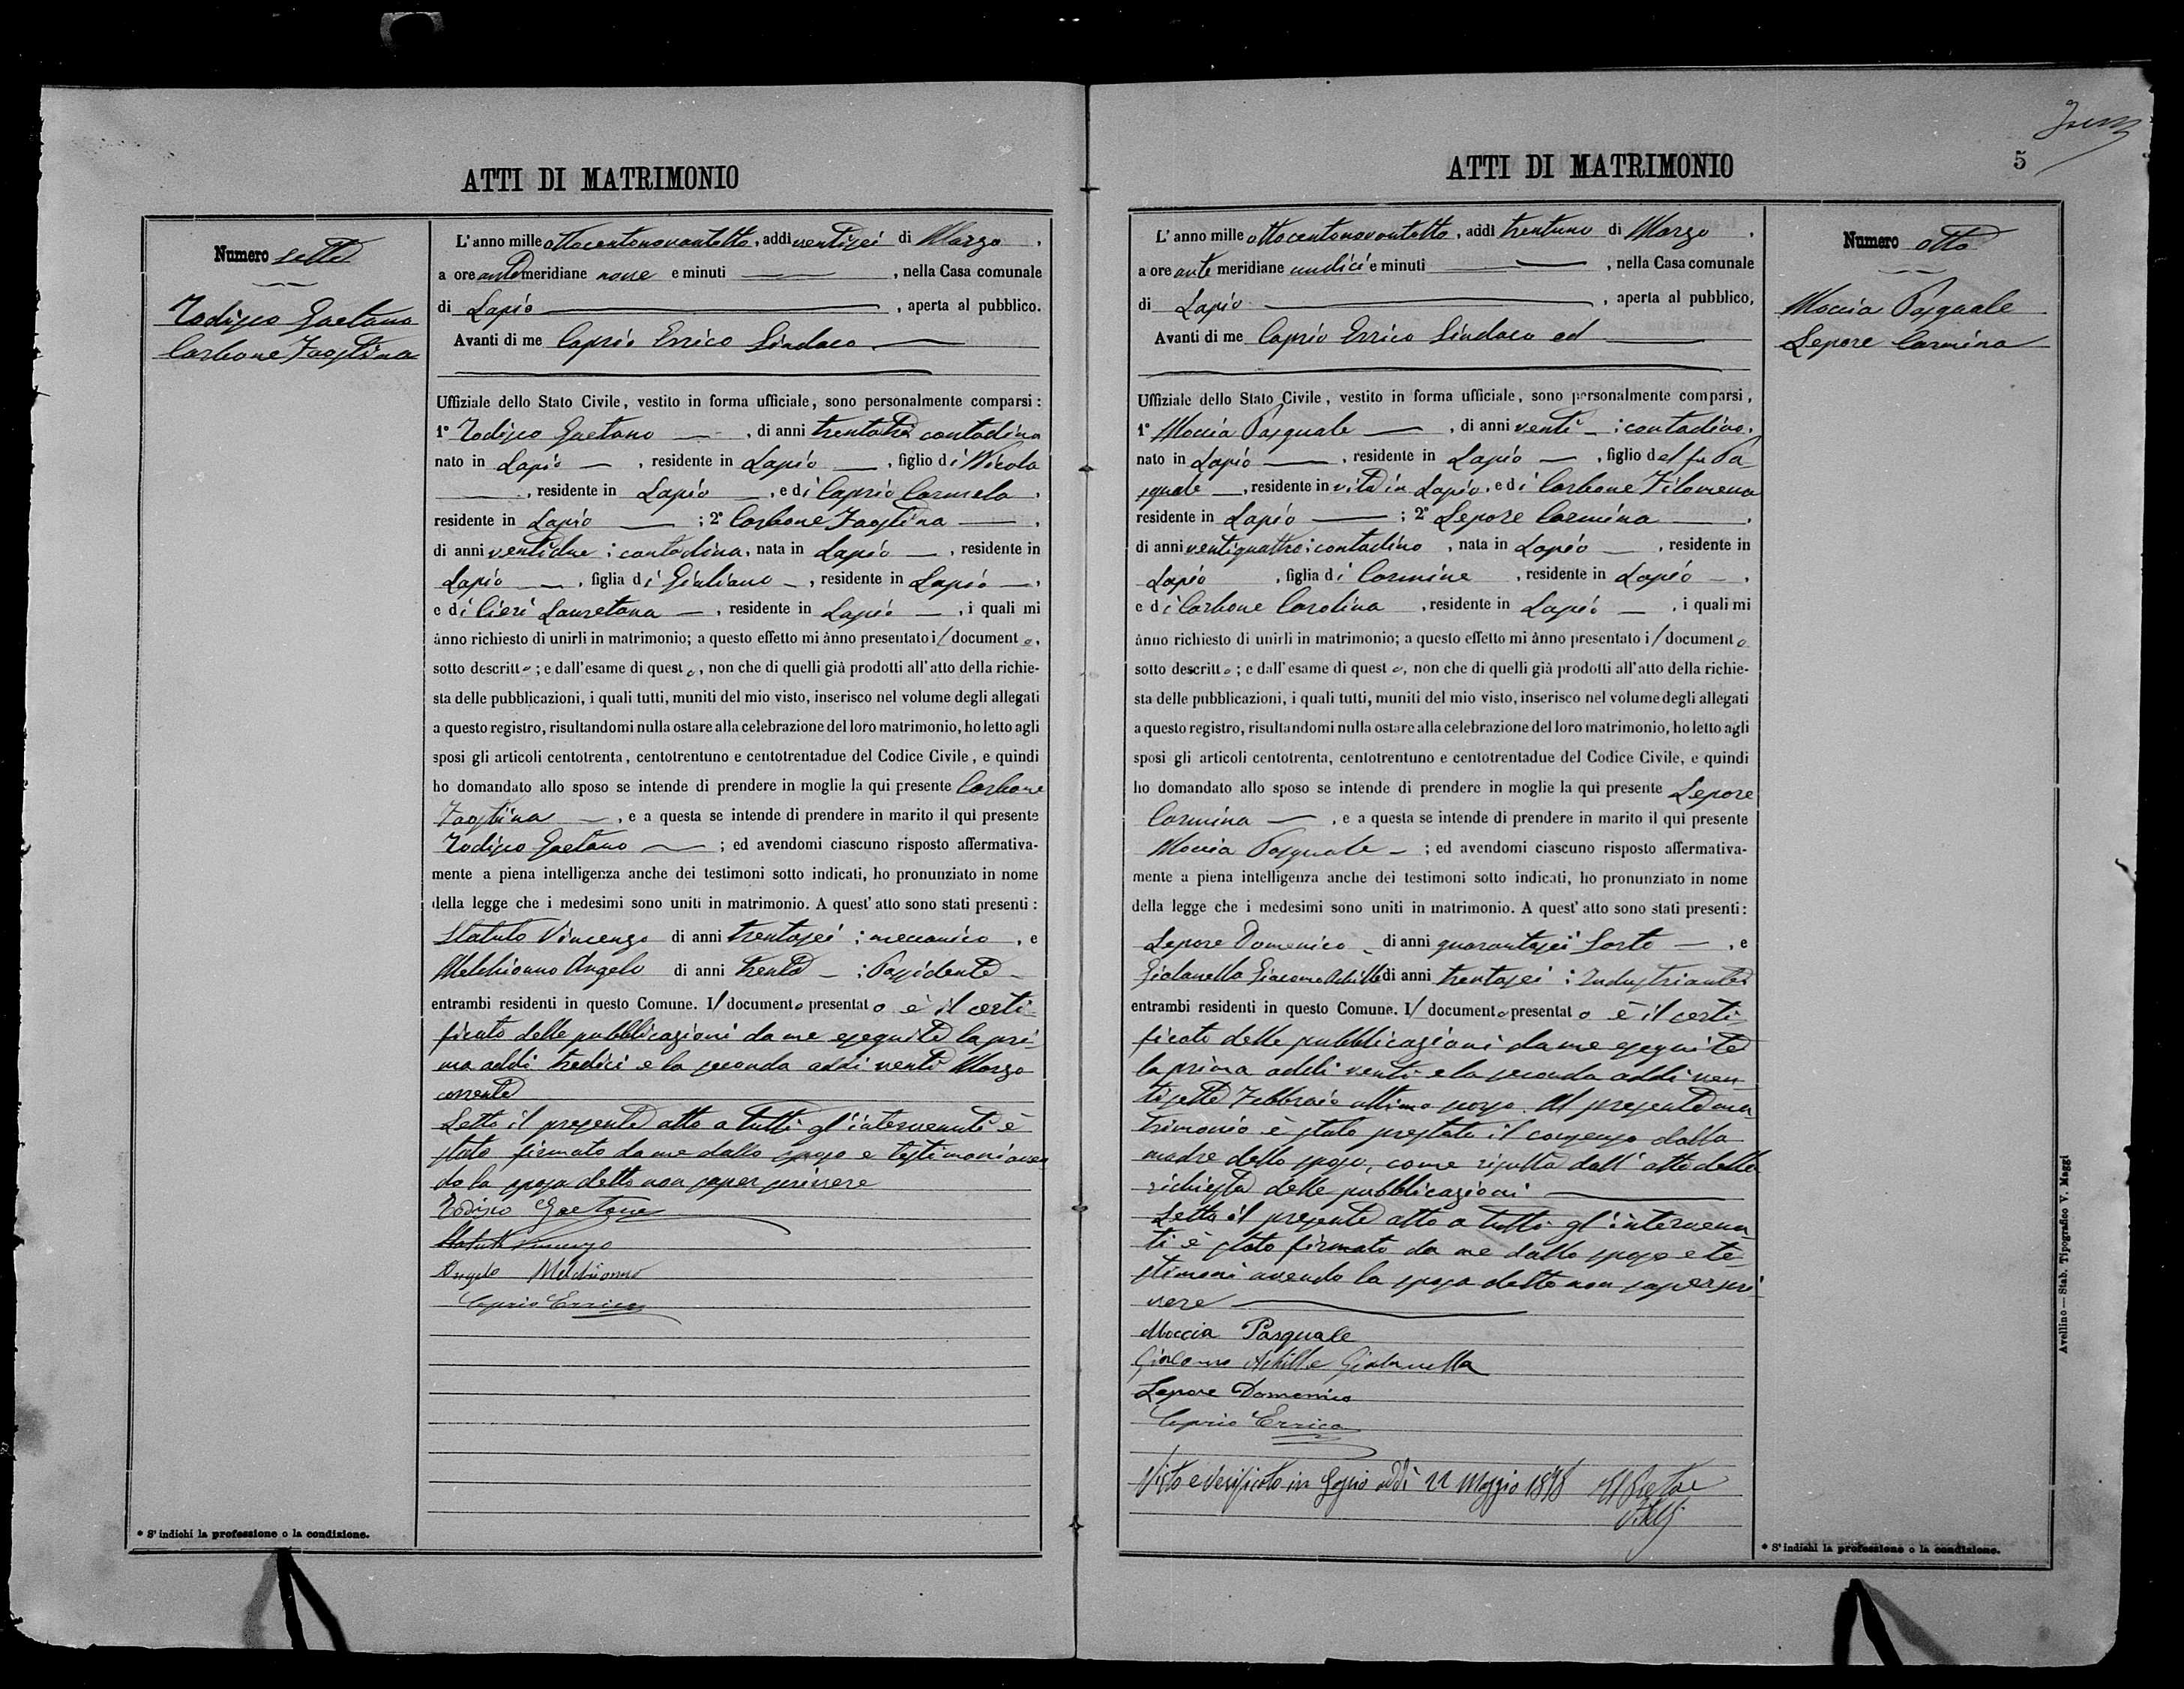 ATTI DI MATRIMONIO
Numero sette
Rodisco Gaetano
Carbone Faostina
L'anno mille ottocentonovantotto, addi ventisei di Marzo,
a ore ante meridiane nove e minuti, nella Casa comunale
di Lapio, aperta al pubblico.
Avanti di me Caprio Errico Sindaco
Uffiziale dello Stato Civile, vestito in forma ufficiale, sono personalmente comparsi:
1° Rodisco Gaetano, di anni trentatre contadino
nato in Lapio, residente in Lapio, figlio di Nicola
, residente in Lapio, e di Caprio Carmela,
residente in Lapio; 2° Carbone Faostina,
di anni ventidue; contadina, nata in Lapio, residente in
Lapio, figlia di Giuliano, residente in Lapio,
e di Cieri Lauretana, residente in Lapio, i quali mi
ànno richiesto di unirli in matrimonio; a questo effetto mi ànno presentato il documento,
sotto descritto; e dall'esame di questo, non che di quelli già prodotti all'atto della richie-
sta delle pubblicazioni, i quali tutti, muniti del mio visto, inserisco nel volume degli allegati
a questo registro, risultandomi nulla ostare alla celebrazione del loro matrimonio, ho letto agli
sposi gli articoli centotrenta, centotrentuno e centotrentadue del Codice Civile, e quindi
ho domandato allo sposo se intende di prendere in moglie la qui presente Carbone
Faostina, e a questa se intende di prendere in marito il qui presente
Rodisco Gaetano; ed avendomi ciascuno risposto affermativa-
mente a piena intelligenza anche dei testimoni sotto indicati, ho pronunziato in nome
della legge che i medesimi sono uniti in matrimonio. A quest'atto sono stati presenti:
Statuto Vincenzo di anni trentasei; meccanico, e
Melchionno Angelo di anni trenta; Possidente
entrambi residenti in questo Comune. Il documento presentato è il certi-
ficato delle pubblicazioni da me eseguite la pri-
ma addi tredici e la seconda addi venti Marzo
corrente
Letto il presente atto a tutti gl'intervenuti è
stato firmato da me dallo sposo e testimoni aven
do la sposa detto non saper scrivere
Rodisco Gaetano
Statuto Vincenzo
Angelo Melchionno
Caprio Errico
* S'indichi la professione o la condizione.
ATTI DI MATRIMONIO
5
L'anno mille ottocentonovantotto, addi trentuno di Marzo,
a ore ante meridiane undici e minuti, nella Casa comunale
di Lapio, aperta al pubblico,
Avanti di me Caprio Errico Sindaco ed
Uffiziale dello Stato Civile, vestito in forma ufficiale, sono personalmente comparsi,
1° Moccia Pasquale, di anni venti; contadino,
nato in Lapio, residente in Lapio, figlio del fu Pa-
squale, residente in vita in Lapio, e di Carbone Filomena
residente in Lapio; 2° Lepore Carmina,
di anni ventiquattro; contadina, nata in Lapio, residente in
Lapio, figlia di Carmine, residente in Lapio,
e di Carbone Carolina, residente in Lapio, i quali mi
ànno richiesto di unirli in matrimonio; a questo effetto mi ànno presentato il documento
sotto descritto; e dall'esame di questo, non che di quelli già prodotti all'atto della richie-
sta delle pubblicazioni, i quali tutti, muniti del mio visto, inserisco nel volume degli allegati
a questo registro, risultandomi nulla ostare alla celebrazione del loro matrimonio, ho letto agli
sposi gli articoli centotrenta, centotrentuno e centotrentadue del Codice Civile, e quindi
ho domandato allo sposo se intende di prendere in moglie la qui presente Lepore
Carmina, e a questa se intende di prendere in marito il qui presente
Moccia Pasquale; ed avendomi ciascuno risposto affermativa-
mente a piena intelligenza anche dei testimoni sotto indicati, ho pronunziato in nome
della legge che i medesimi sono uniti in matrimonio. A quest'atto sono stati presenti:
Lepore Domenico di anni quarantasei Sarto, e
Giolanella Giacomo Achille di anni trentasei; Industriante
entrambi residenti in questo Comune. Il documento presentato è il certi-
ficato delle pubblicazioni da me eseguite
la prima addi venti e la seconda addi ven
tisette Febbraio ultimo scorso. Al presente ma
trimonio è stato prestato il consenso dalla
madre dello sposo, come risulta dall'atto della
richiesta delle pubblicazioni
Letto il presente atto a tutti gl'intervenu
ti è stato firmato da me dallo sposo e te-
stimoni avendo la sposa detto non saper scri
vere
Moccia Pasquale
Giacomo Achille Giolanella
Lepore Domenico
Caprio Errico
Visto e verificato in Lapio addì 22 Maggio 1898 Il Pretore
Numero otto
Moccia Pasquale
Lepore Carmina
* S'indichi la professione o la condizione.
Avellino — Stab. Tipografico V. Maggi